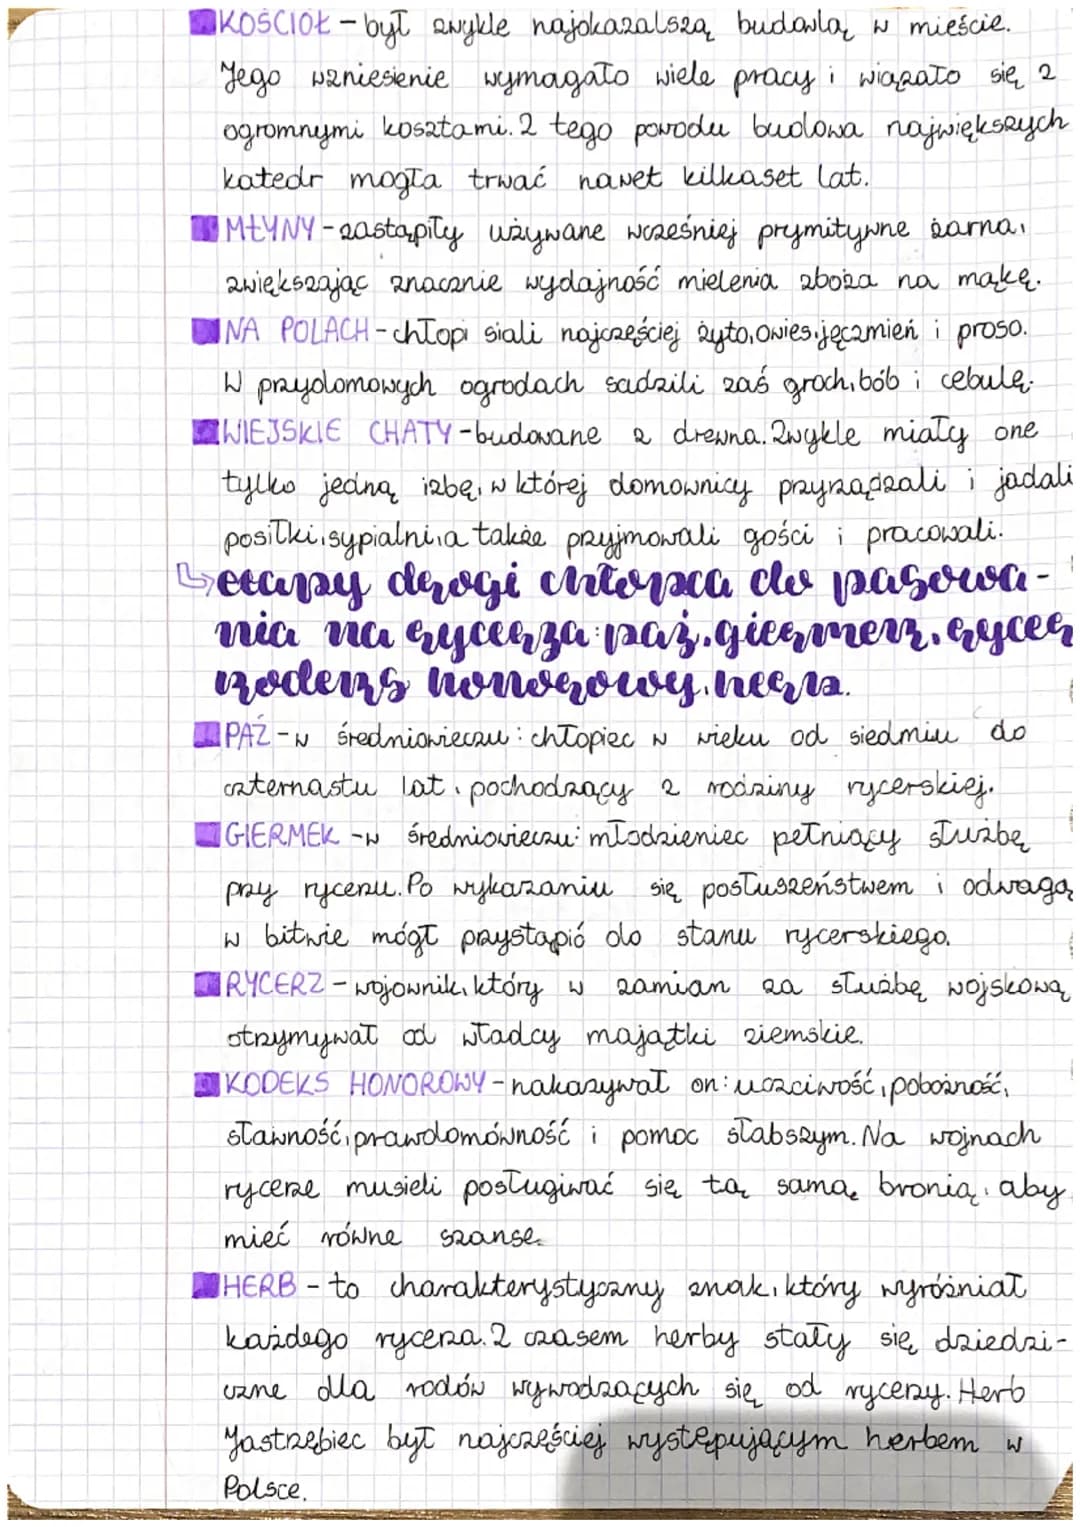 KOŚCIÓŁ - był zwykle najokazalszą budowlą w mieście.
Jego wzniesienie wymagało wiele pracy i wiązało się z
ogromnymi kosztami. Z tego powodu budowa największych
katedr mogła trwać nawet kilkaset lat.
MŁYNY - zastąpiły używane wcześniej prymitywne żarna,
zwiększając znacznie wydajność mielenia zboża na mąkę.
NA POLACH - chłopi siali najczęściej żyto, owies, jęczmień i proso.
W przydomowych ogrodach sadzili zaś groch, bób i cebulę.
WIEJSKIE CHATY - budowane z drewna. Zwykle miały one
tylko jedną izbę, w której domownicy przyrządzali i jadali
posiłki, sypialni, a także przyjmowali gości i pracowali.
etapy drogi chłopca do pasowa-
nia na rycerza: paź, giermek, rycerz
kodeks honorowy, herb.
PAŹ - w średniowieczu: chłopiec w wieku od siedmiu do
czternastu lat, pochodzący z rodziny rycerskiej.
GIERMEK - w średniowieczu: młodzieniec pełniący służbę
przy rycerzu. Po wykazaniu się posłuszeństwem i odwagą
w bitwie mógł przystąpić do stanu rycerskiego.
RYCERZ - wojownik, który w zamian za służbę wojskową
otrzymywał od władcy majątki ziemskie.
KODEKS HONOROWY - nakazywał on: uczciwość, pobożność,
sławność, prawdomówność i pomoc słabszym. Na wojnach
rycerze musieli posługiwać się tą samą bronią, aby
mieć równe szanse.
HERB - to charakterystyczny znak, który wyróżniał
każdego rycerza. Z czasem herby stały się dziedzi-
czne dla rodów wywodzących się od rycerzy. Herb
Jastrzębiec był najczęściej występującym herbem w
Polsce.